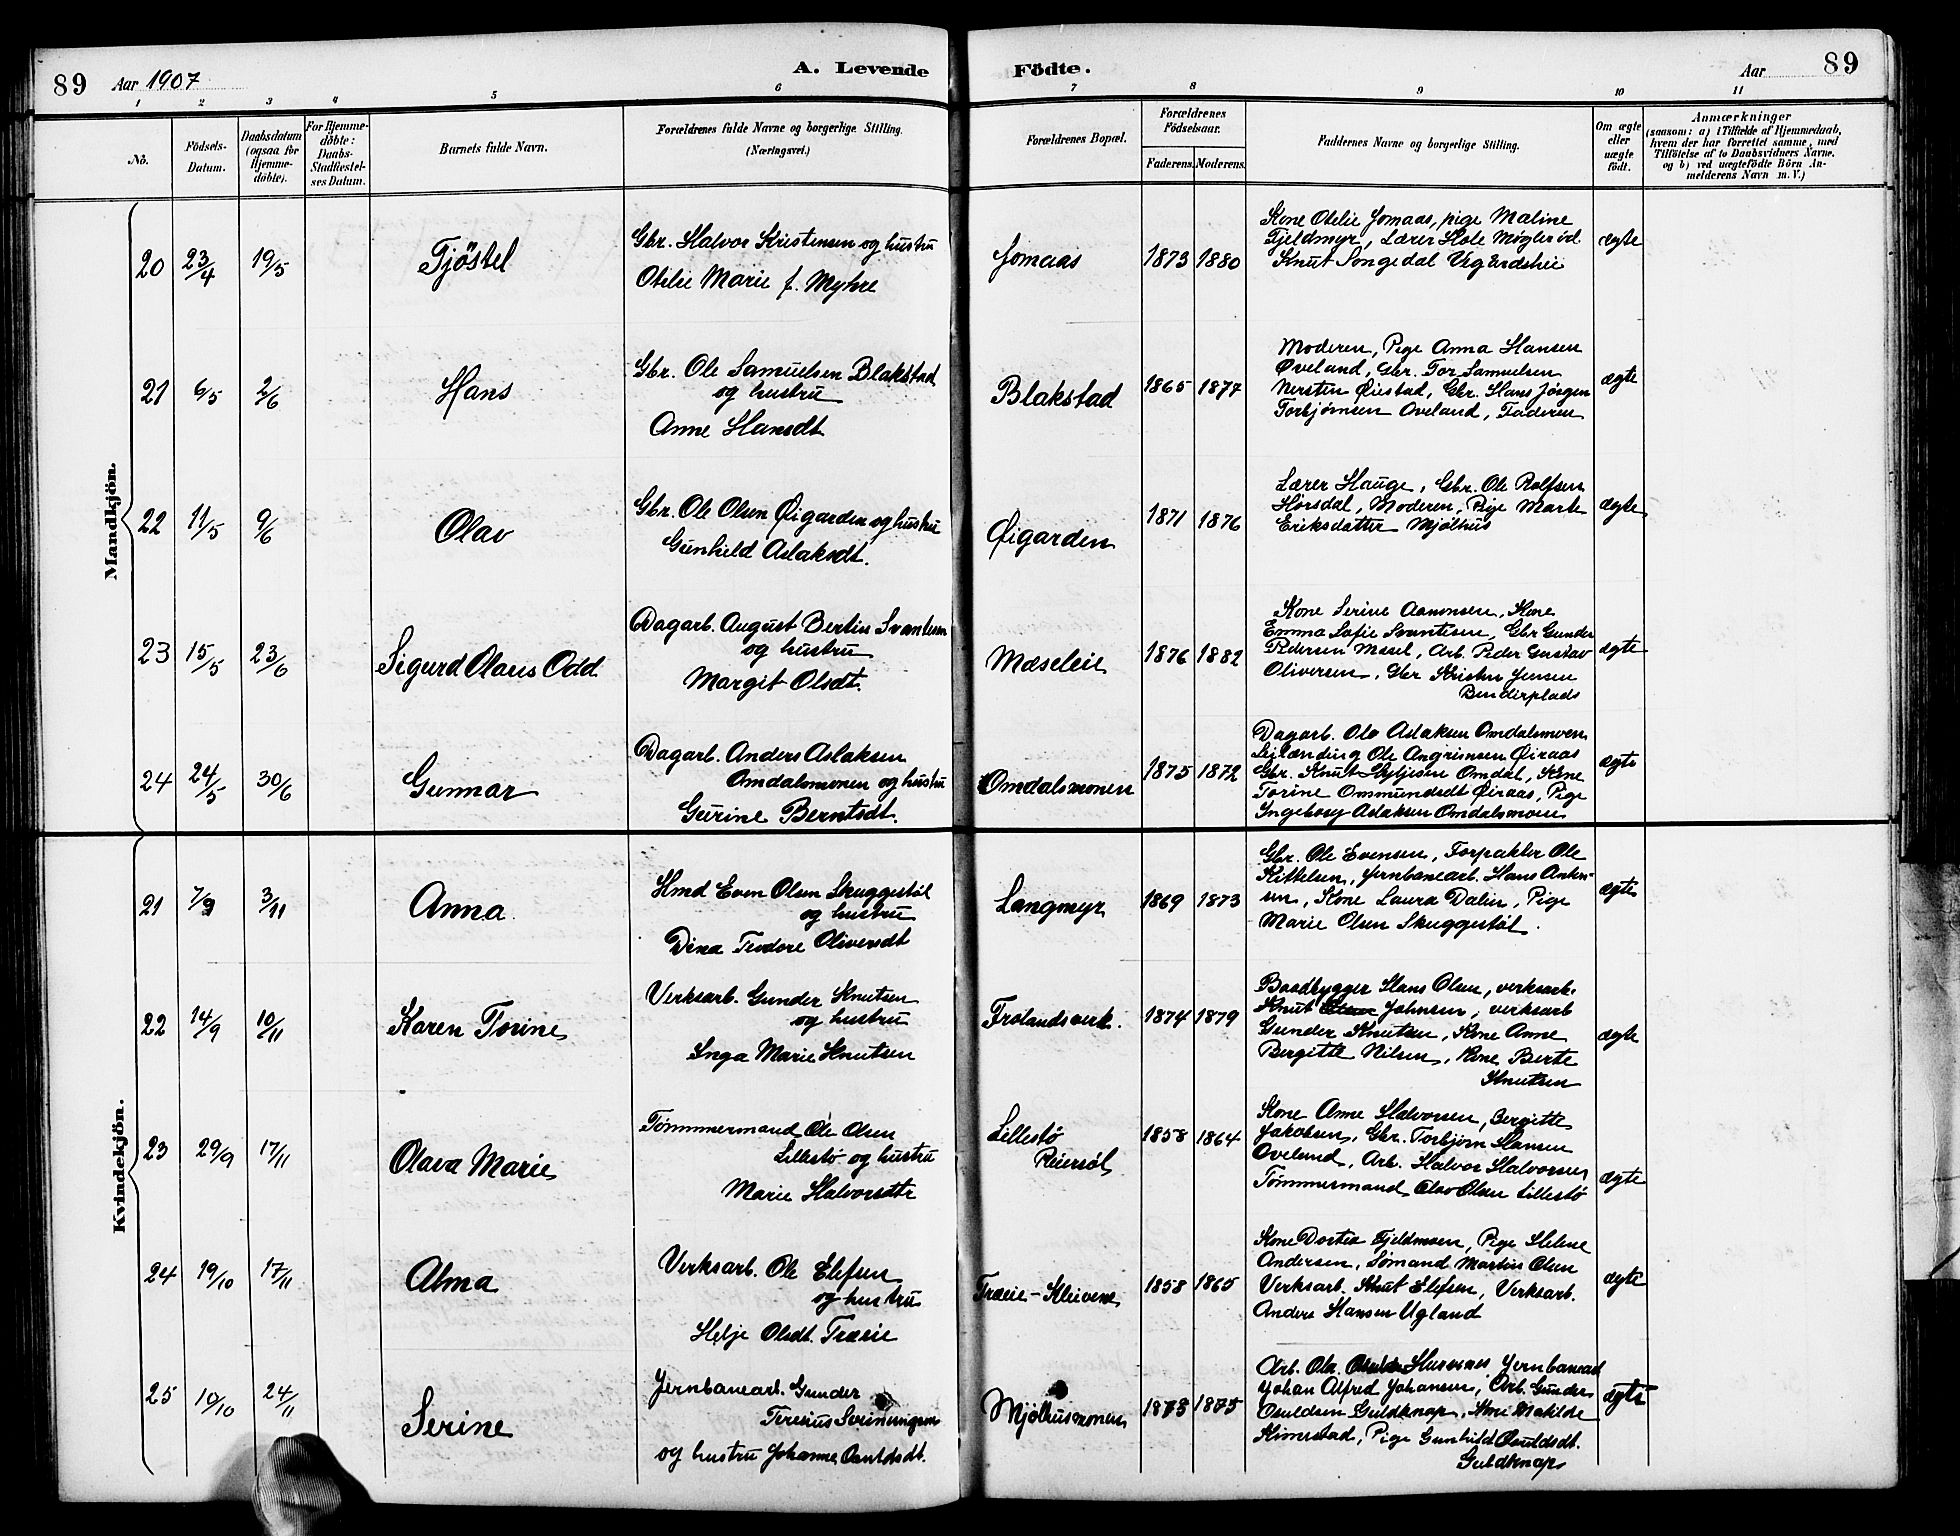 89 Aar 1907 A. Levende Födte. Aar 89
1 2 3 4 5 6 7 8 9 10 11
No.
Födsels-
Datum.
Daabsdatum
(ogsaa for
Hjemme-
döbte).
For Hjemme-
döbte:
Daabs-
Stadfæstel-
ses Datum.
Barnets fulde Navn.
Forældrenes fulde Navne og borgerlige Stilling.
(Næringsvei.)
Forældrenes Bopæl.
Forældrenes
Födselsaar.
Faderens. Moderens.
Faddernes Navne og borgerlige Stilling.
Om ægte
eller
uægte
födt.
Anmærkninger
(saasom: a) i Tilfælde af Hjemmedaab,
hvem der har forrettet samme, med
Tilföielse af to Daabsvidners Navne,
og b) ved uægtefödte Börn An-
melderens Navn m. V.)
Mandkjön.
20 23/4 19/5 Tjöstel
Gbr. Halvor Kristensen og hustru
Otelie Marie f. Myhre
Jomaas 1873 1880
Kone Otelie Jomaas, pige Maline
Fjeldmyr, Lærer Hole
Knut Songedal Vegardshei
ægte
21 6/5 2/6 Hans
Gbr. Ole Samuelsen Blakstad
og hustru
Anne Hansdt
Blakstad 1865 1877
Moderen, Pige Anna Hansen
Øveland, Gbr. Tor Samuelsen
Nersten Øiestad, Gbr. Hans Jörgen
Torbjørnsen Oveland, Faderen
ægte
22 11/5 9/6 Olav
Gbr. Ole Olsen Øigarden og hustru
Gunhild Aslaksdt.
Øigarden 1871 1876
Lærer Hauge, Gbr. Ole Rolfsen
Hörsdal, Moderen, Pige Marte
Eriksdatter Mjølhus
ægte
23 15/5 23/6 Sigurd Olaus Odd
Dagarb. August Bertin Svantesen
og hustru
Margit Olsdt.
Mæseleie 1876 1882
Kone Serine Aanonsen, Kone
Emma Sofie Svantesen, Gbr Gunder
Pedersen Mesel, Arb. Peder Gustav
Oliversen, Gbr Kristen Jensen
Benderplads
ægte
24 24/5 30/6 Gunnar
Dagarb. Anders Aslaksen
Omdalsmonen og hustru
Gurine Berntsdt.
Omdalsmonen 1875 1872
Dagarb. Ola Aslaksen Omdalsmoen
Ole Angrimsen Øiraas
Gbr. Knut Omdal, Kone
Torine Ommundsdt Øiraas, Pige
Ingeborg Aslaksen Omdalsmoen
ægte
Kvindekjön.
21 7/9 3/11 Anna
Hmd Even Olsen Skuggestøl
og hustru
Dina Teodore Oliversdt
Langmyr 1869 1873
Gbr. Ole Evensen, Forpakter Ole
Kittelsen, jernbanearb. Hans Anton-
sen, Kone Laura Dalen, Pige
Marie Olsen Skuggestøl.
ægte
22 14/9 10/11 Karen Torine
Verksarb. Gunder Knutsen
og hustru
Inga Marie Knutsen
Frolandsverk. 1874 1879
Baadbygger Hans Olsen, verksarb.
Knut Johnsen, verksarb
Gunder Knutsen, Kone Anne
Bergitte Nilsen, Kone Berte
Knutsen
ægte
23 29/9 17/11 Olava Marie
Tømmermand Ole Olsen
Lillestø og hustru
Marie Halvorsdtr
Lillestø
Reiersøl
1858 1864
Kone Anne Halvorsen, Bergitte
Jakobsen, Gbr. Torbjørn Hansen
Oveland, Arb. Halvor Halvorsen
Tømmermand Olav Olsen Lillestø
ægte
24 19/10 17/11 Alma
Verksarb. Ole Elefsen
og hustru
Helje Olsdt. Træeie
Træeie-Kleivene 1858 1865
Kone Dortea Fjeldmoen, Pige Helene
Andersen, Sømand Martin Olsen
Verksarb. Knut Elefsen, Verksarb.
Anders Hansen Ugland
ægte
25 10/10 24/11 Serine
Jernbanearb. Gunder
Teresius
og hustru Johanne Osuldsdt.
Mjølhusmonen 1873 1875
Arb. Ola Jernbanearb
Johan Alfred Johansen, Arb. Gunder
Osuldsen Guldknap, Kone Matilde
Rimestad, Pige Gunhild Osuldsdt.
Guldknap
ægte